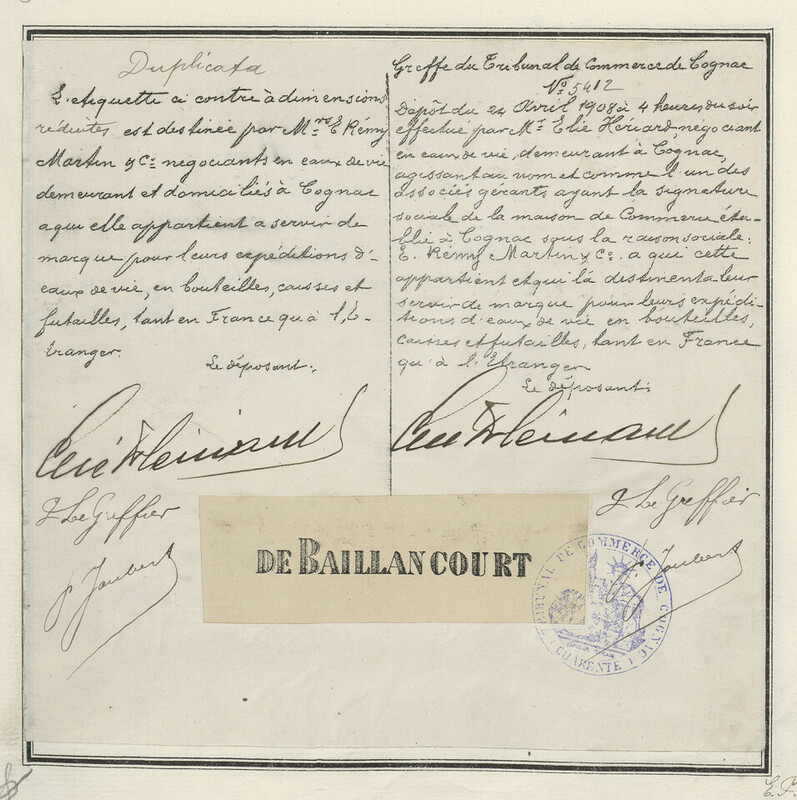 Duplicata
L'etiquette ci contre à dimensions
réduites est destinée par Mrs E. Rémy
Martin & Co négociants en eaux de vie
demeurant et domiciliés à Cognac
a qui elle appartient a servir de
marque pour leurs expéditions d'-
eaux de vie, en bouteilles, caisses et
futailles, tant en France qu'à l'É-
tranger.
Le déposant:
J. Le Greffier
p. Joubert
Greffe du Tribunal de Commerce de Cognac
No 5412
Dépôt du 24 Avril 1908 à 4 heures du soir
effectué par Mr Elie Hériard, négociant
en eaux de vie, demeurant à Cognac,
agissant au nom et comme l'un des
associés gérants ayant la signature
sociale de la maison de Commerce éta-
blie à Cognac sous la raison sociale:
E. Rémy Martin & Co. a qui cette
appartient et qui la destine a leur
servir de marque pour leurs expédi-
tions d'eaux de vie en bouteilles,
caisses et futailles, tant en France
qu'à l'Etranger
Le déposant:
J. Le Greffier
Joubert
DE BAILLANCOURT
TRIBUNAL DE COMMERCE DE COGNAC
CHARENTE
E.P.